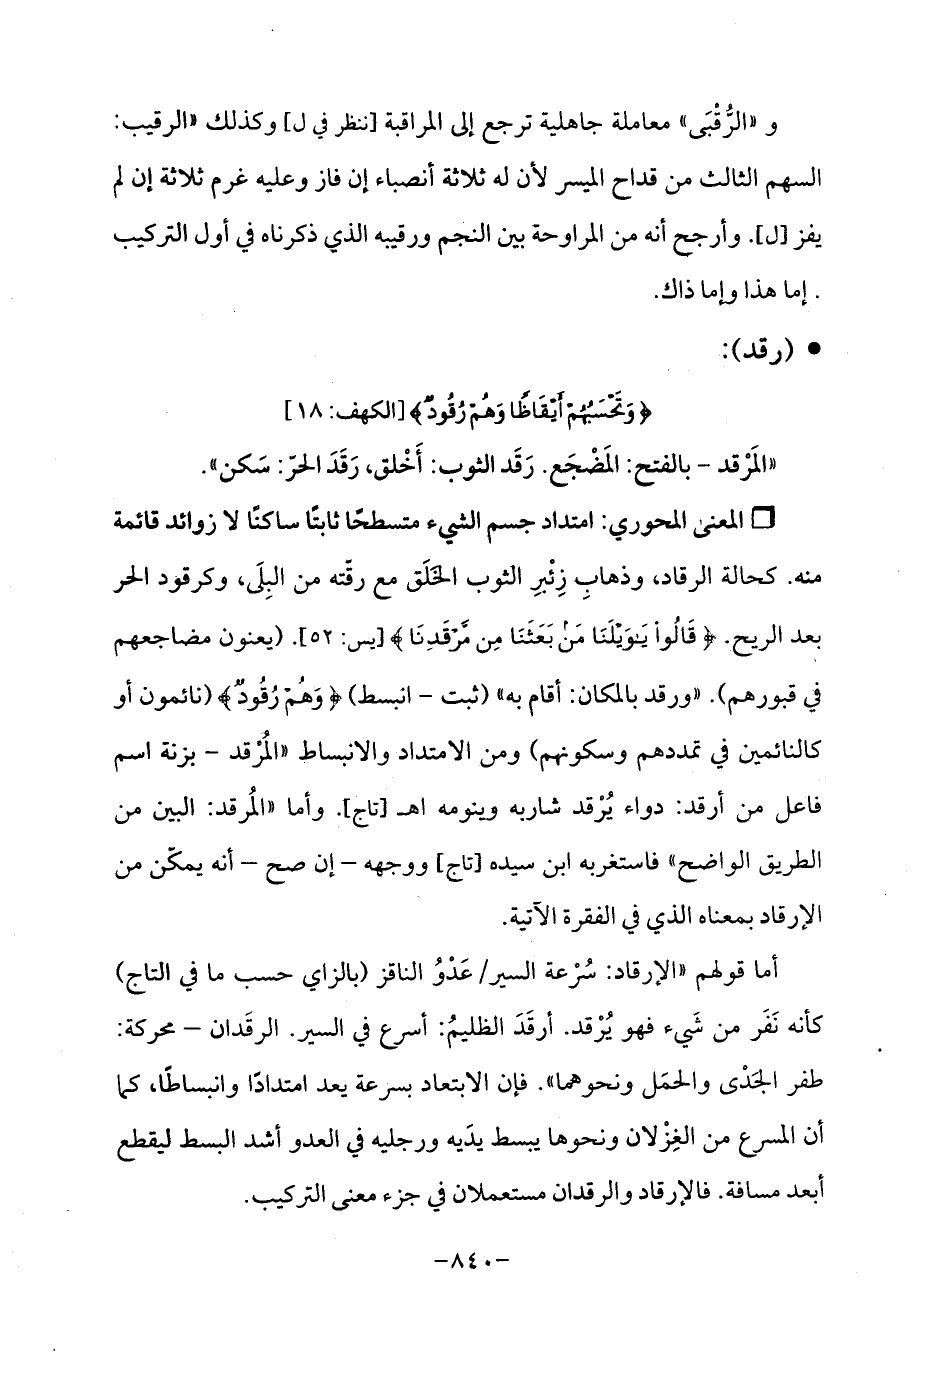 و «الرُّقْبَى» معاملة جاهلية ترجع إلى المراقبة [ننظر في ل] وكذلك «الرقيب:
السهم الثالث من قداح الميسر لأن له ثلاثة أنصباء إن فاز وعليه غرم ثلاثة إن لم
يفز [ل]. وأرجح أنه من المراوحة بين النجم ورقيبه الذي ذكرناه في أول التركيب
. إما هذا وإما ذاك.
● (رقد):
﴿وَتَحْسَبُهُمْ أَيْقَاظًا وَهُمْ رُقُودٌ﴾ [الكهف: ١٨]
«المَرْقد – بالفتح: المَضْجَع. رَقَد الثوب: أَخْلق، رَقَدَ الحَرّ: سَكن».
❒ المعنى المحوري: امتداد جسم الشيء متسطحًا ثابتًا ساكنًا لا زوائد قائمة
منه. كحالة الرقاد، وذهابِ زِئْبرِ الثوب الخَلَق مع رقّته من البِلَى، وكرقود الحر
بعد الريح. ﴿قَالُوا۟ يَـٰوَيْلَنَا مَنۢ بَعَثَنَا مِن مَّرْقَدِنَا﴾ [يس: ٥٢]. (يعنون مضاجعهم
في قبورهم). «ورقد بالمكان: أقام به» (ثبت – انبسط) ﴿وَهُمْ رُقُودٌ﴾ (نائمون أو
كالنائمين في تمددهم وسكونهم) ومن الامتداد والانبساط «المُرْقد – بزنة اسم
فاعل من أرقد: دواء يُرْقد شاربه وينومه اهـ [تاج]. وأما «المُرقد: البين من
الطريق الواضح» فاستغربه ابن سيده [تاج] ووجهه – إن صح – أنه يمكّن من
الإرقاد بمعناه الذي في الفقرة الآتية.
أما قولهم «الإرقاد: سُرْعة السير/ عَدْوُ الناقز (بالزاي حسب ما في التاج)
كأنه نَفَر من شَيء فهو يُرْقد. أرقَدَ الظليمُ: أسرع في السير. الرقَدان – محركة:
طفر الجَدْى والحمَل ونحوهما». فإن الابتعاد بسرعة يعد امتدادًا وانبساطًا، كما
أن المسرع من الغِزْلان ونحوها يبسط يدَيه ورجليه في العدو أشد البسط ليقطع
أبعد مسافة. فالإرقاد والرقدان مستعملان في جزء معنى التركيب.
–٨٤٠–